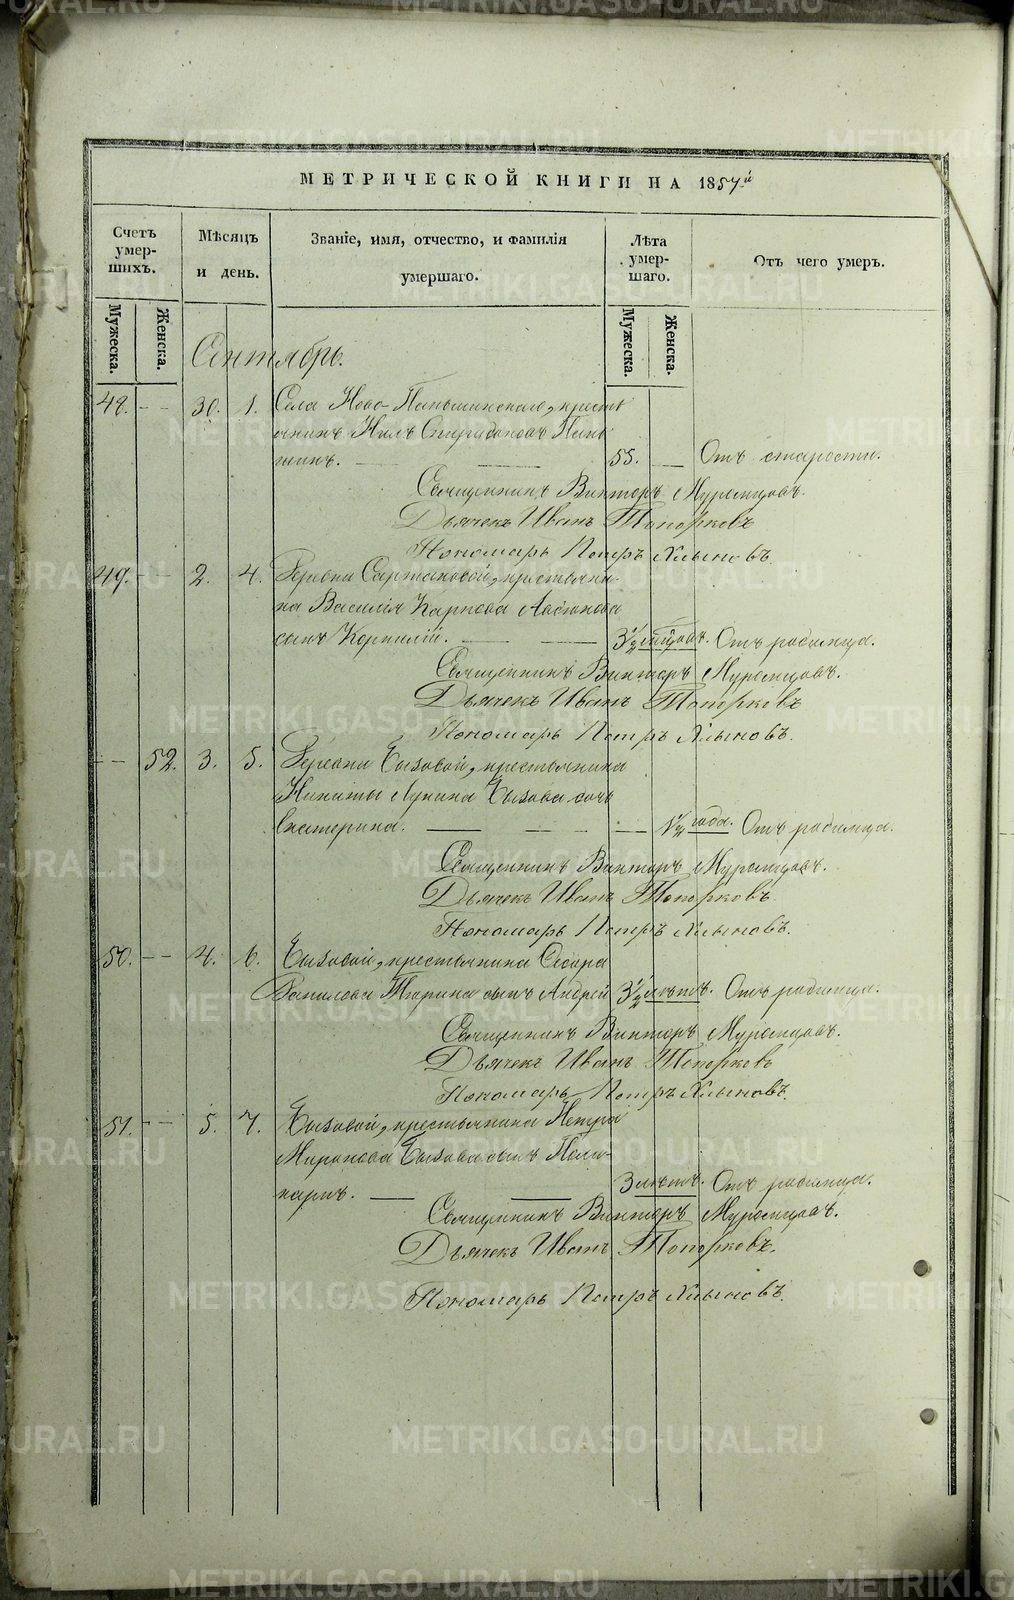 МЕТРИЧЕСКОЙ КНИГИ НА 1857й
Счетъ умер-шихъ.
Мѣсяцъ и день.
Званіе, имя, отчество, и фамилія умершаго.
Лѣта умер-шаго.
Отъ чего умеръ.
Мужеска.
Женска.
Мужеска.
Женска.
Сентябрь.
48. -- 30. 1. Села Ново-Паньшинскаго, кресть
янинъ Нилъ Спиридоновъ Пань
шинъ. — — 55. — Отъ старости.
Священникъ Викторъ Муромцовъ.
Дьячекъ Иванъ Топорковъ
Пономарь Петръ Хлыновъ.
49. -- 2. 4. Деревни Сартаковой, крестьяни-
на Василія Карпова
сынъ Корнилій. — — 3 1/2 мѣсяцовъ. Отъ родимца.
Священникъ Викторъ Муромцовъ.
Дьячекъ Иванъ Топорковъ
Пономарь Петръ Хлыновъ.
-- 52. 3. 5. Деревни Бызовой, крестьянина
Никиты Лукина Бызова дочь
Екатерина. — — — — 1 1/2 года. Отъ родимца.
Священникъ Викторъ Муромцовъ.
Дьячекъ Иванъ Топорковъ.
Пономарь Петръ Хлыновъ.
50. -- 4. 6. Бызовой, крестьянина Ѳедора
Данилова Тюрина сынъ Андрей 3 1/2 лѣтъ. Отъ родимца.
Священникъ Викторъ Муромцовъ.
Дьячекъ Иванъ Топорковъ
Пономарь Петръ Хлыновъ.
51. -- 5. 7. Бызовой, крестьянина Петра
Миронова Бызова сынъ Поли-
карпъ. — — 3 лѣтъ. Отъ родимца.
Священникъ Викторъ Муромцовъ.
Дьячекъ Иванъ Топорковъ.
Пономарь Петръ Хлыновъ.
METRIKI.GASO-URAL.RU